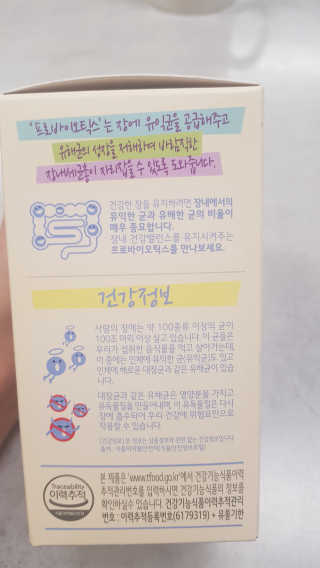 '프로바이오틱스'는 장에 유익균을 공급해주고
유해균의 성장을 저해하여 바람직한
장내세균총이 자리잡을 수 있도록 도와줍니다.
건강한 장을 유지하려면 장내에서의
유익한 균과 유해한 균의 비율이
매우 중요합니다.
장내 건강밸런스를 유지시켜주는
프로바이오틱스를 만나보세요.
건강정보
사람의 장에는 약 100종류 이상의 균이
100조 마리 이상 살고 있습니다. 이 균들은
우리가 섭취한 음식물을 먹고 살아가는데,
이 중에는 인체에 유익한 균(유익균)도 있고
인체에 해로운 대장균과 같은 유해균이 있습
니다.
대장균과 같은 유해균은 영양분을 가지고
유독물질을 만들어내며, 이 유독물질은 다시
장에 흡수되어 우리 건강에 위험요인으로
작용할 수 있습니다.
(건강정보) 본 정보는 상품정보와 관련 없는 건강정보입니다
Traceability
이력추적
본 제품은 'www.tfood.go.kr'에서 건강기능식품이력
추적관리번호를 입력하시면 건강기능식품의 정보를
확인하실수 있습니다. 건강기능식품이력추적관리
번호 : 이력추적등록번호(6179319) + 유통기한